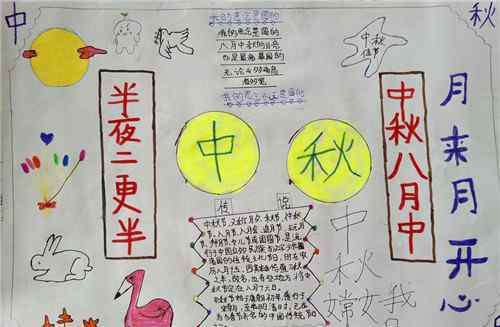 中
秋
我的思念是圆的
我的思念是圆的
八月中秋的月亮
也是最亮最圆的
无论山多高海
我的思念是圆的
中秋
佳节
半夜二更半
中秋八月中
月来月开心
中
秋
传说
中秋节,又称月夕、秋节、仲秋
节、八月节、八月会、追月节、玩月
节、拜月节、女儿节或团圆节,是流
行于中国众多民族与汉字文化圈
诸国的传统文化节日,时在农
历八月十五;因其恰值三秋
之半,故名,也有些地方将中
秋节定在八月十六。
中秋节始于唐朝初年,盛行于
宋朝,至明清时,已
与春节齐名的中国传统节
中
秋
嫦女我